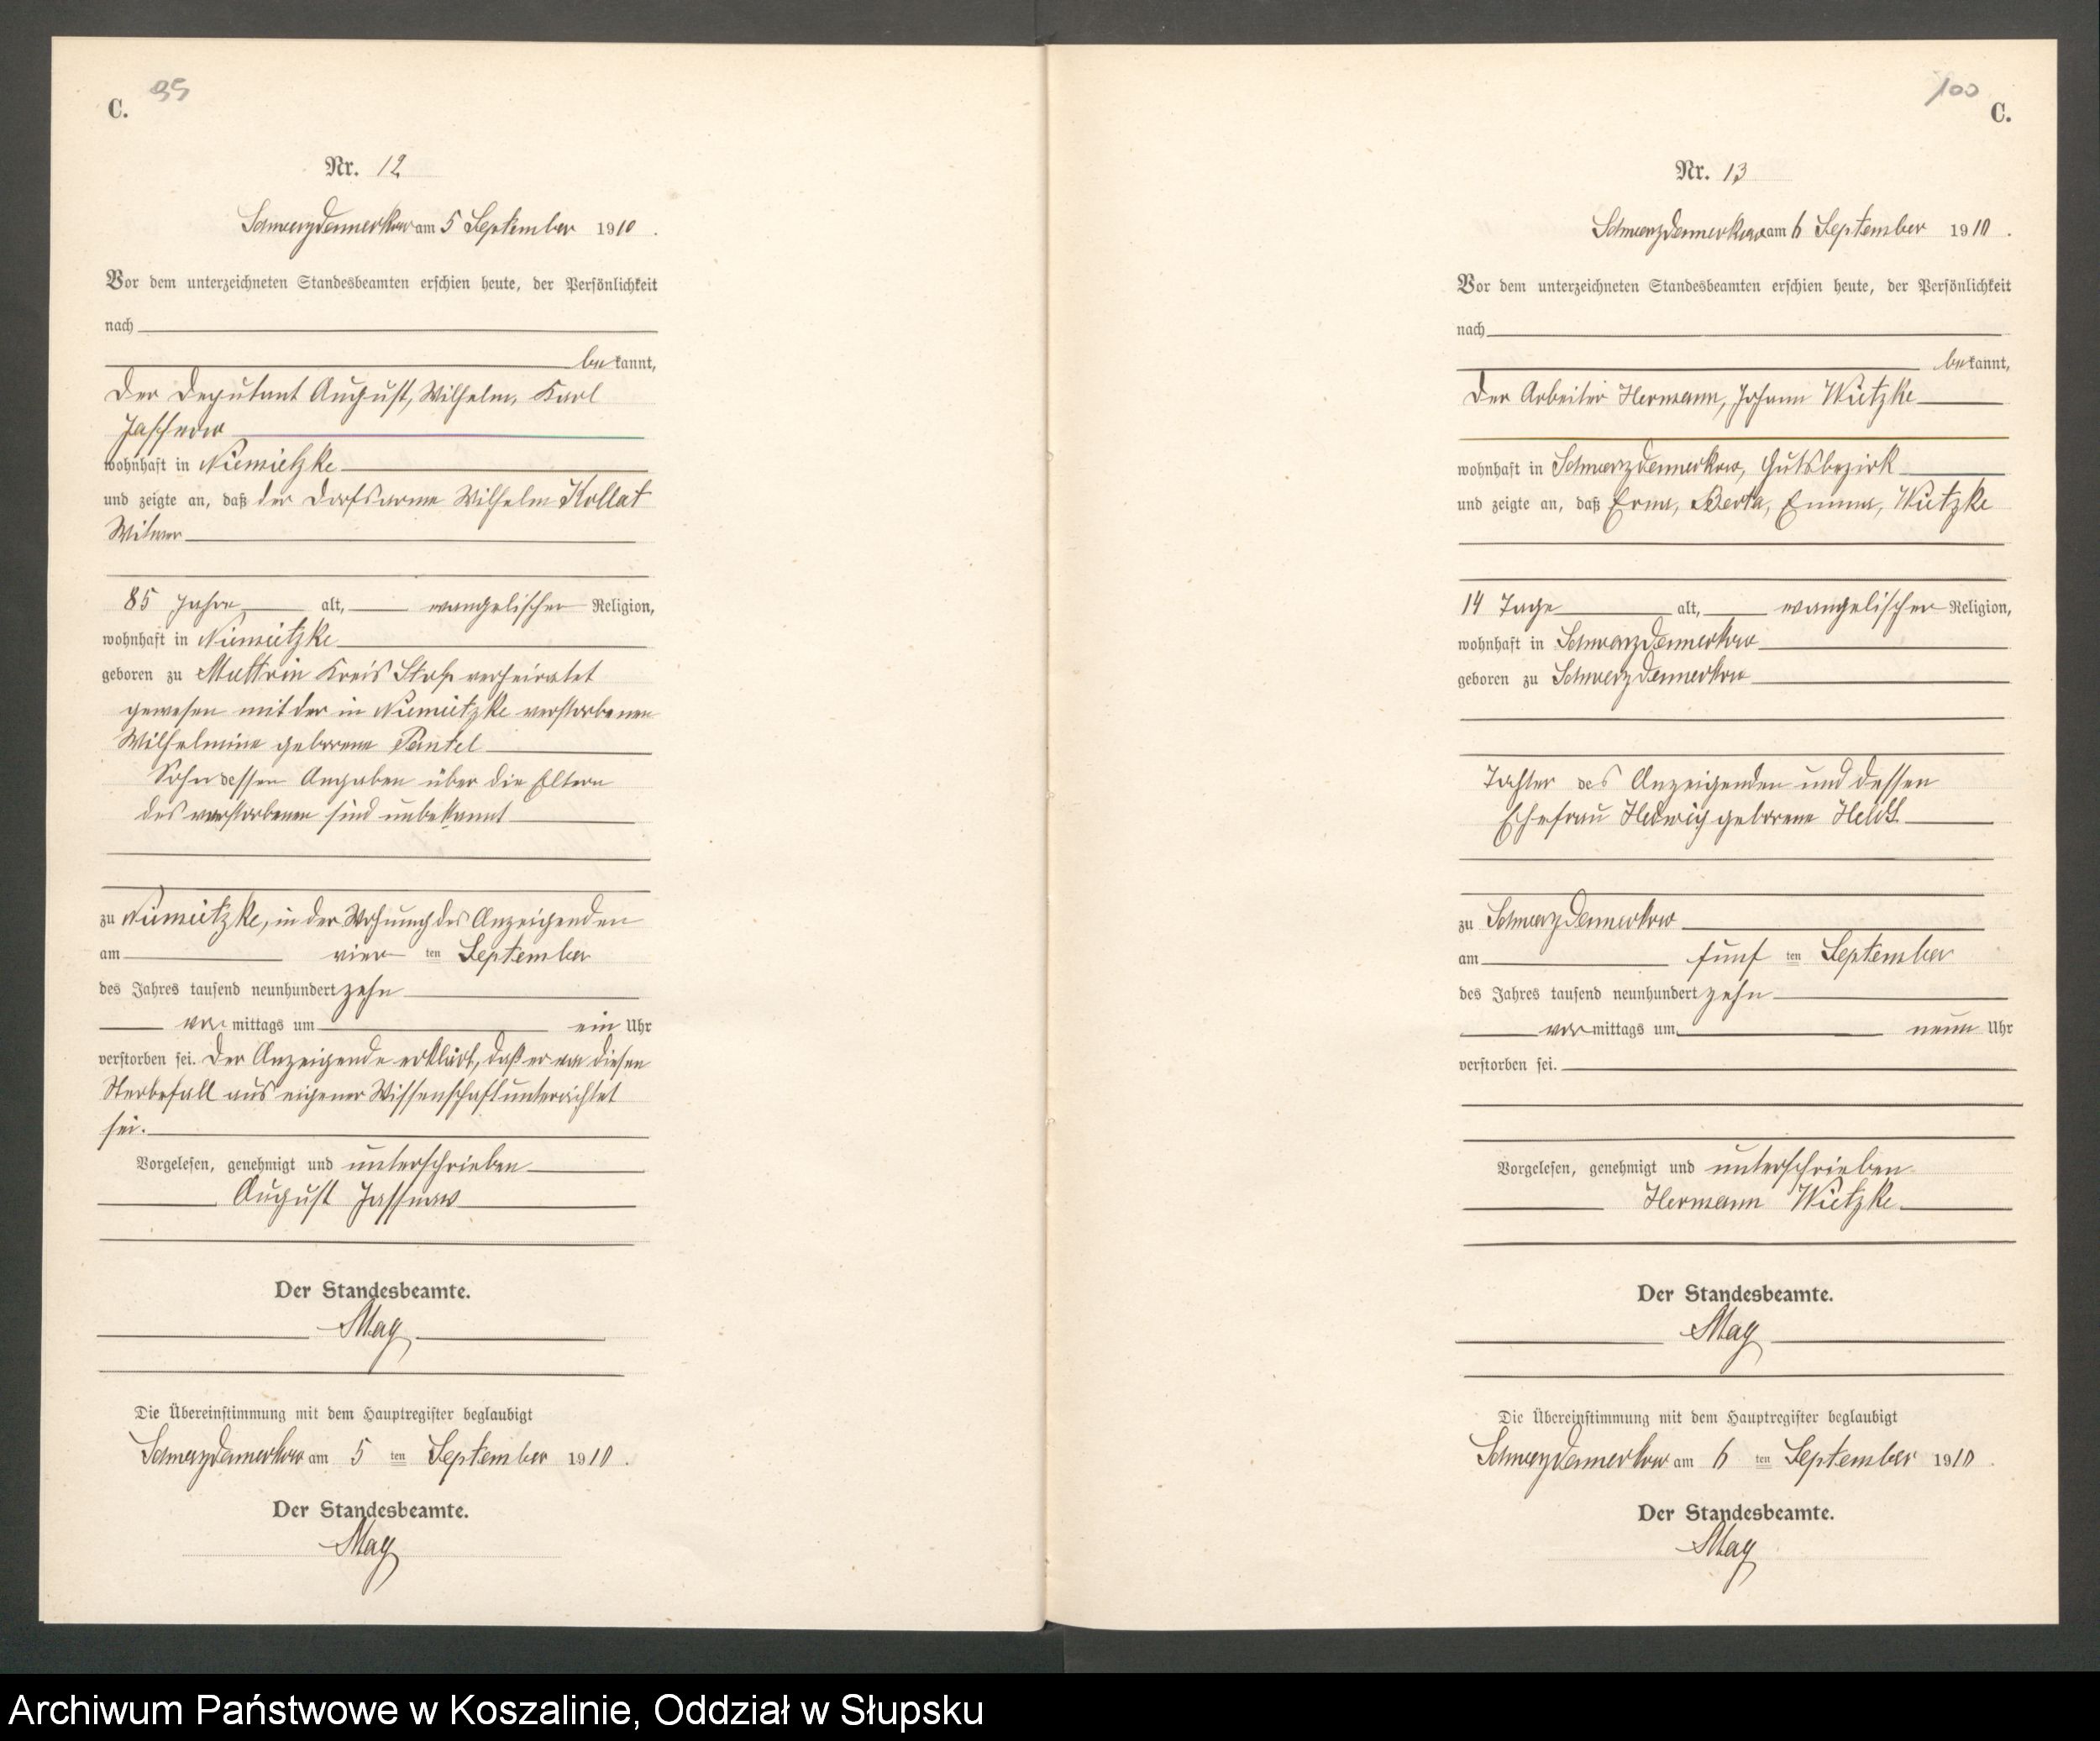 C. 99
Nr. 12
Schwarzdamerkow am 5 September 1910.
Vor dem unterzeichneten Standesbeamten erschien heute, der Persönlichkeit
nach
bekannt,
der Deputant August, Wilhelm, Karl
Jassnow
wohnhaft in Niemietzke
und zeigte an, daß der Dorfsarme Wilhelm Kollat
Witwer
85 Jahre alt, evangelischer Religion,
wohnhaft in Niemietzke
geboren zu Muttrin Kreis Stolp verheiratet
gewesen mit der in Niemietzke verstorbenen
Wilhelmine geborene Pantel
Sohn dessen Angaben über die Eltern
des verstorbenen sind unbekannt
zu Niemietzke, in der Wohnung des Anzeigenden
am vier ten September
des Jahres tausend neunhundert zehn
vor mittags um ein Uhr
verstorben sei. Der Anzeigende erklärt, daß er von diesen
Sterbefall aus eigener Wissenschaft unterrichtet
sei.
Vorgelesen, genehmigt und unterschrieben
August Jassnow
Der Standesbeamte.
May
Die Übereinstimmung mit dem Hauptregister beglaubigt
Schwarzdamerkow am 5 ten September 1910.
Der Standesbeamte.
May
100
C.
Nr. 13
Schwarzdamerkow am 6 September 1910.
Vor dem unterzeichneten Standesbeamten erschien heute, der Persönlichkeit
nach
bekannt,
der Arbeiter Hermann, Johann Wietzke
wohnhaft in Schwarzdamerkow, Gutsbezirk
und zeigte an, daß Erna, Berta, Emma, Wietzke
14 Tage alt, evangelischer Religion,
wohnhaft in Schwarzdamerkow
geboren zu Schwarzdamerkow
Tochter des Anzeigenden und dessen
Ehefrau Hedwig geborene Heldt
zu Schwarzdamerkow
am fünf ten September
des Jahres tausend neunhundert zehn
vor mittags um neun Uhr
verstorben sei.
Vorgelesen, genehmigt und unterschrieben
Hermann Wietzke
Der Standesbeamte.
May
Die Übereinstimmung mit dem Hauptregister beglaubigt
Schwarzdamerkow am 6 ten September 1910.
Der Standesbeamte.
May
Archiwum Państwowe w Koszalinie, Oddział w Słupsku